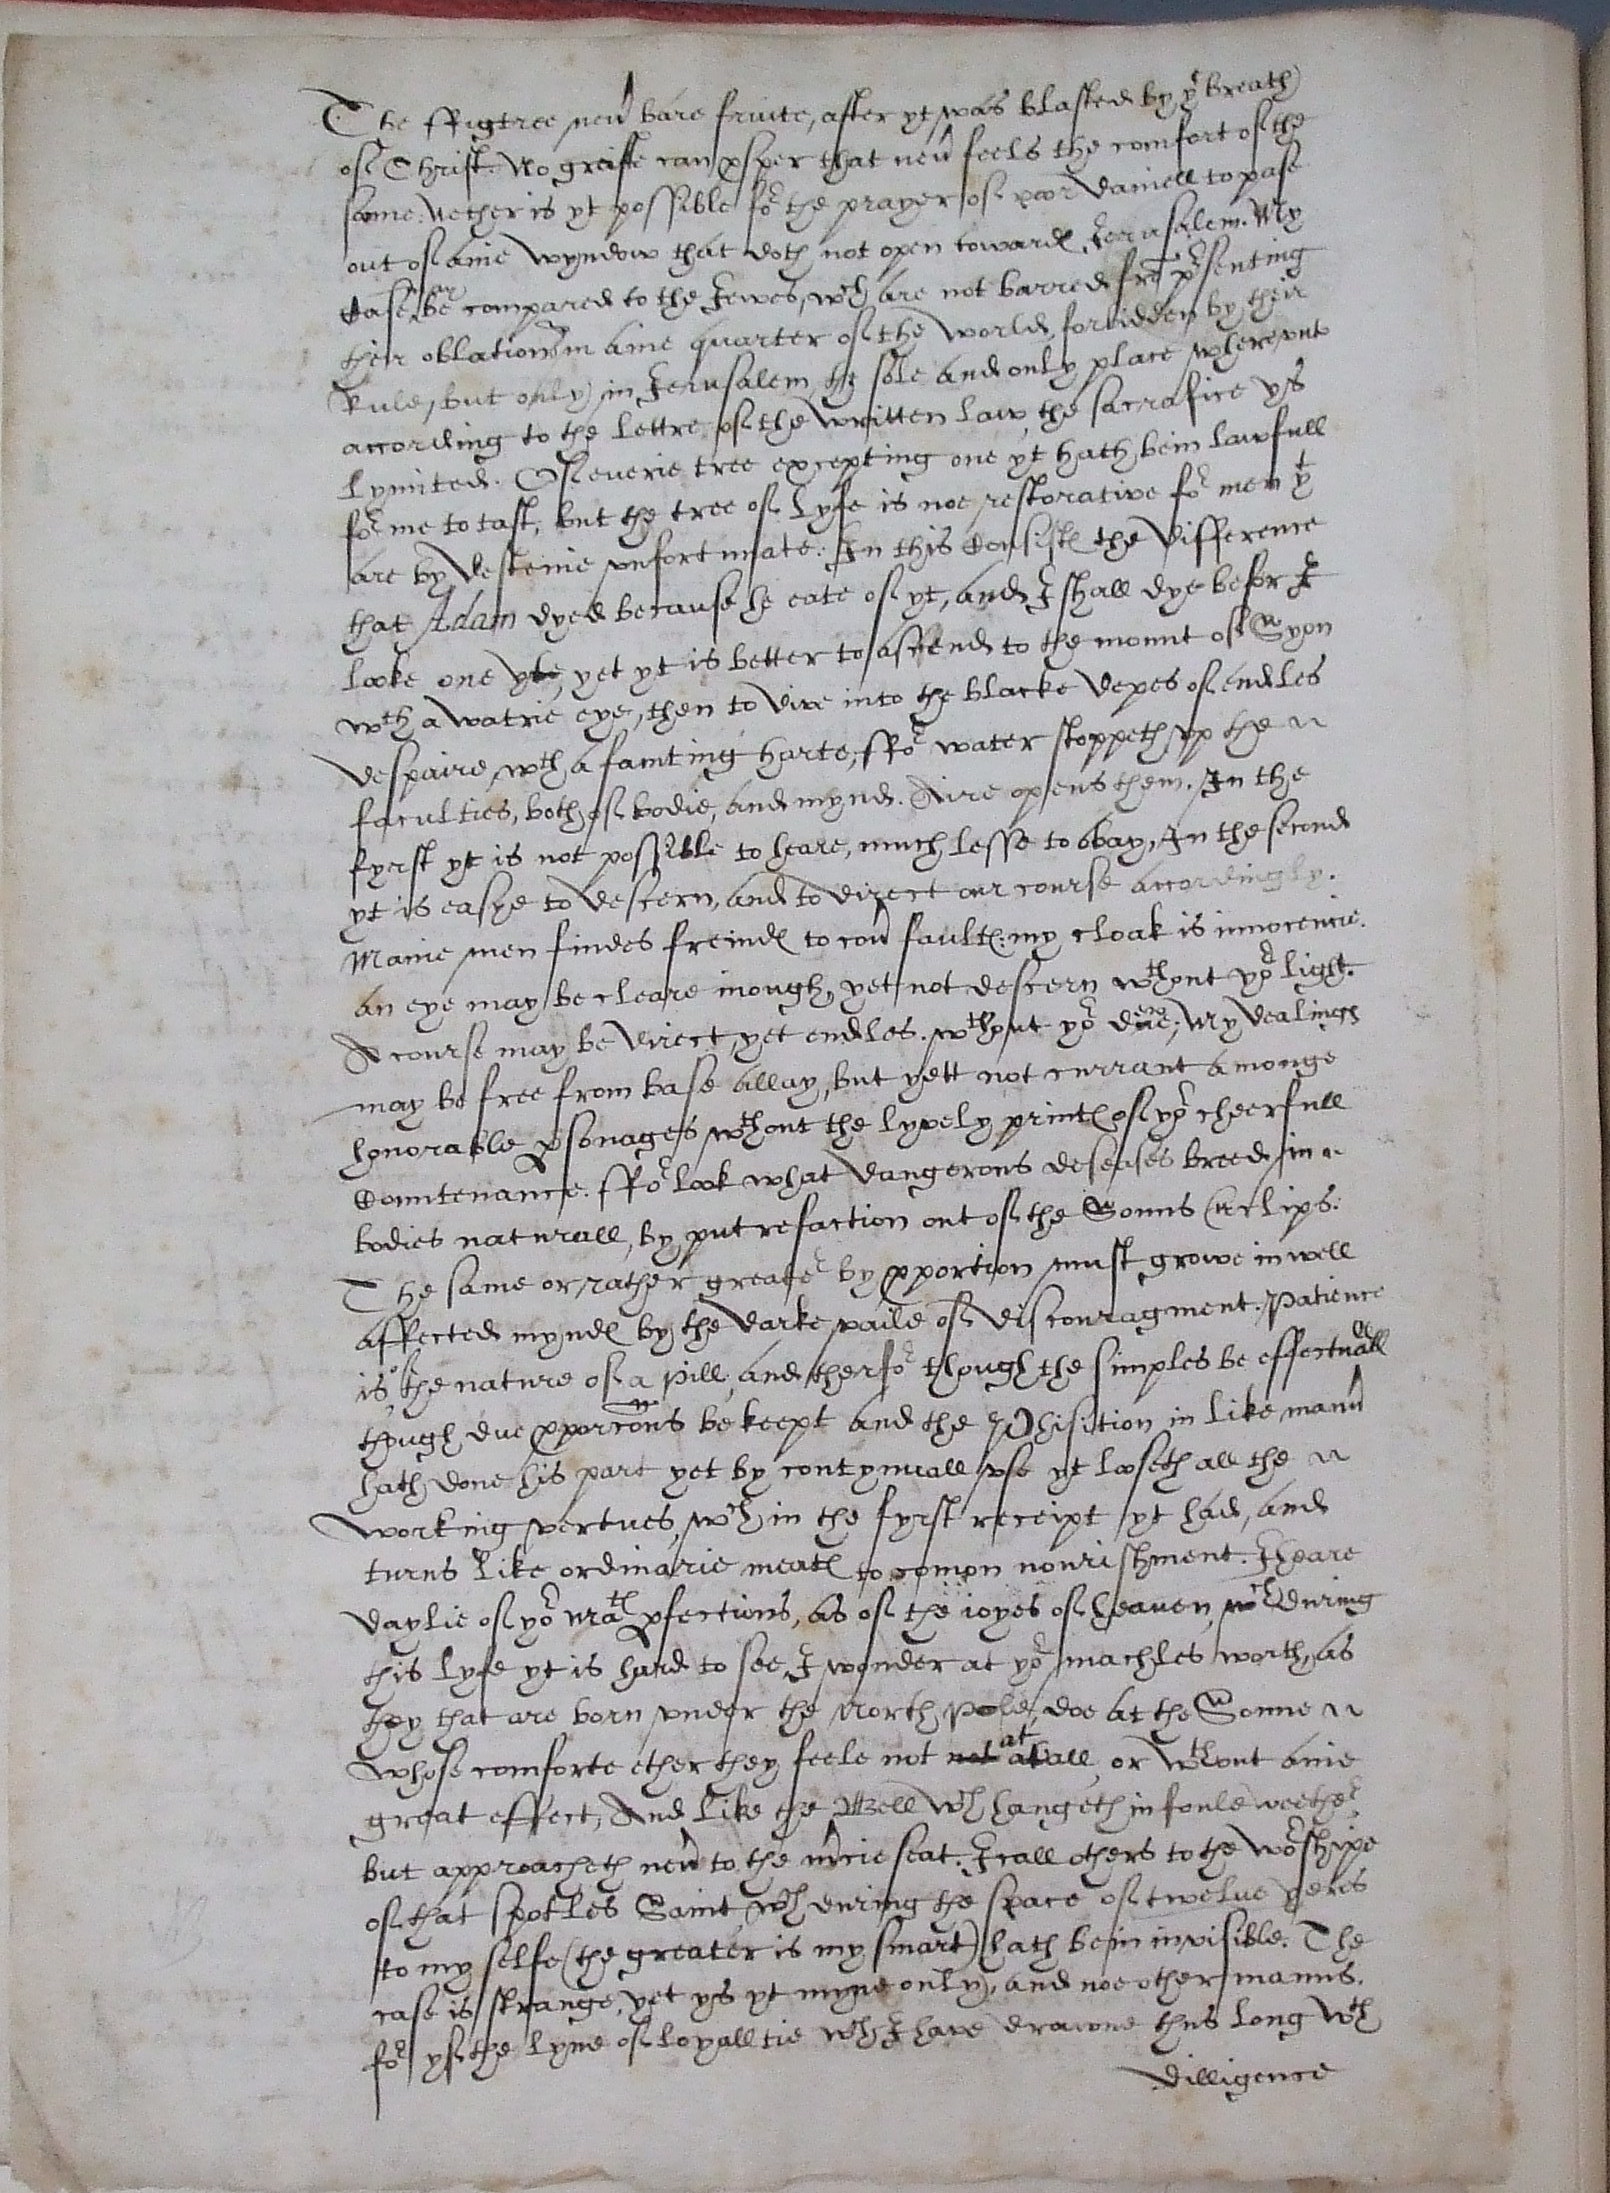 The ffigtree neu̾ bare fruite, after yt was blasted by ye breath
of Christ. No greiffe can ꝑsper that neu̾ feels the comfort of the
same. Nether is yt possible for the prayer of poor Daniell to passe
out of anie wyndow that doth not open towardꝭ Jerusalem. My
case may be compared to the Jewes, wch are not barred fro̅ prsenting
their oblations in anie quarter of the world, forbidden by their
Rule, but only in Jerusalem, the sole and only place whereunto
according to the lettre of the written law, the sacrafice ys
lymited. Of euerie tree excepting one yt hath bein lawfull
for me to tast, but the tree of lyfe is noe restorative for men yt
are by destenie unfortunate. In this consistꝭ the difference
that Adam dyed because he eate of yt, and I shall dye befor I
looke one yt, yet yt is better to assend to the mount of Syon
wth a watrie eye, then to dive into the blacke depes of endles
despaire, wth a fainting harte, ffor water stoppeth up the
faculties, both of bodie, and mynd. Aire opens them. In the
fyrst yt is not possible to heare, much lesse to obay, In the second
yt is easye to descern, and to direct our course accordingly.
Manie men findes freindꝭ to cou̾ faultꝭ: my cloak is innocencie.
an eye may be cleare inough, yet not descern wthout yor light.
A course may be direct, yet endles. wthout yor My dealings
may be free from base allay, but yett not currant amonge
honorable ꝑsonages wthout the lyvely printꝭ of yor cheerfull
Countenance. ffor look what dangerous deseases breed in
bodies naturall, by putrefaction out of the Sonns Eclips.
The same or rather greater by ꝓportion must growe in well
affected myndꝭ by the darke vaile of discouragment. Patience
is of the nature of a pill, and therfor though the simples be effectuall
though due ꝓporcons be keept and the Phisition in like manu̾
hath done his part yet by contynuall use yt looseth all the
working vertues, wch in the fyrst receipt yt had, and
turns like ordinarie meatꝭ to comon nourishment. I heare
daylie of yor Matꝭ ꝑfections, as of the ioyes of heaven, wch during
this lyfe yt is hard to see, I wonder at yor machles worth, as
they that are born under the North Pole, doe at the Sonne
whose comforte ether they feele not not at all, or wthout anie
great effect, And like the Bell wch hangeth in foule weether
but approacheth neu̾ to the m̾cie seat. I call others to the worshipe
of that spotles Saint, wch during the space of twelue yeres
to my selfe (the greater is my smart) hath bein invisible. The
case is strange, yet ys yt myne only, and noe other manns.
for yf the lyne of loyalltie wch I have drawne thus long wth
dilligence